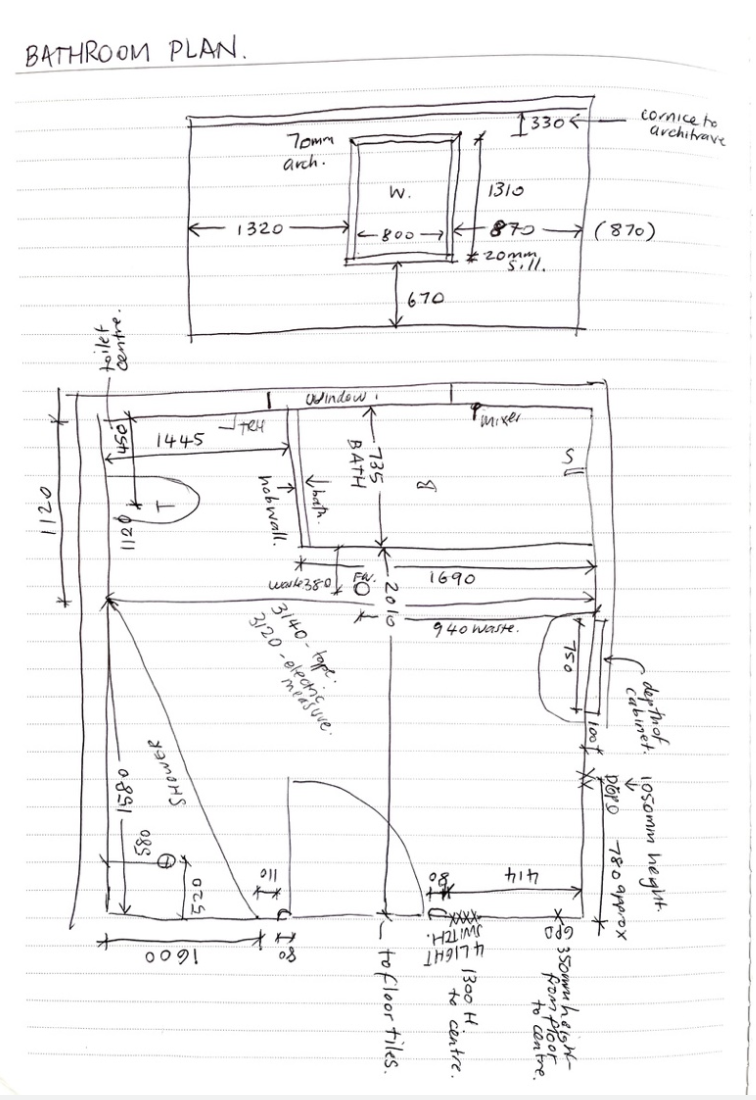 BATHROOM PLAN.
330
cornice to
architrave
70mm
arch.
W.
1310
1320
800
870
(870)
20mm
sill.
670
toilet
centre.
window
mixer
450
1445
TRH
735
BATH
1120
T
1120
hobwall.
bath.
S
waste 380
FW.
1690
2010
940 waste.
3140 - tape.
3120 - electric
measure.
750
depth of
cabinet.
100
1050mm height.
DGPO
780 approx
SHOWER
1580
580
520
110
80
414
1600
80
4 LIGHT
SWITCH.
GPO
to floor tiles.
1300 H
to centre.
350mm height
from floor
to centre.